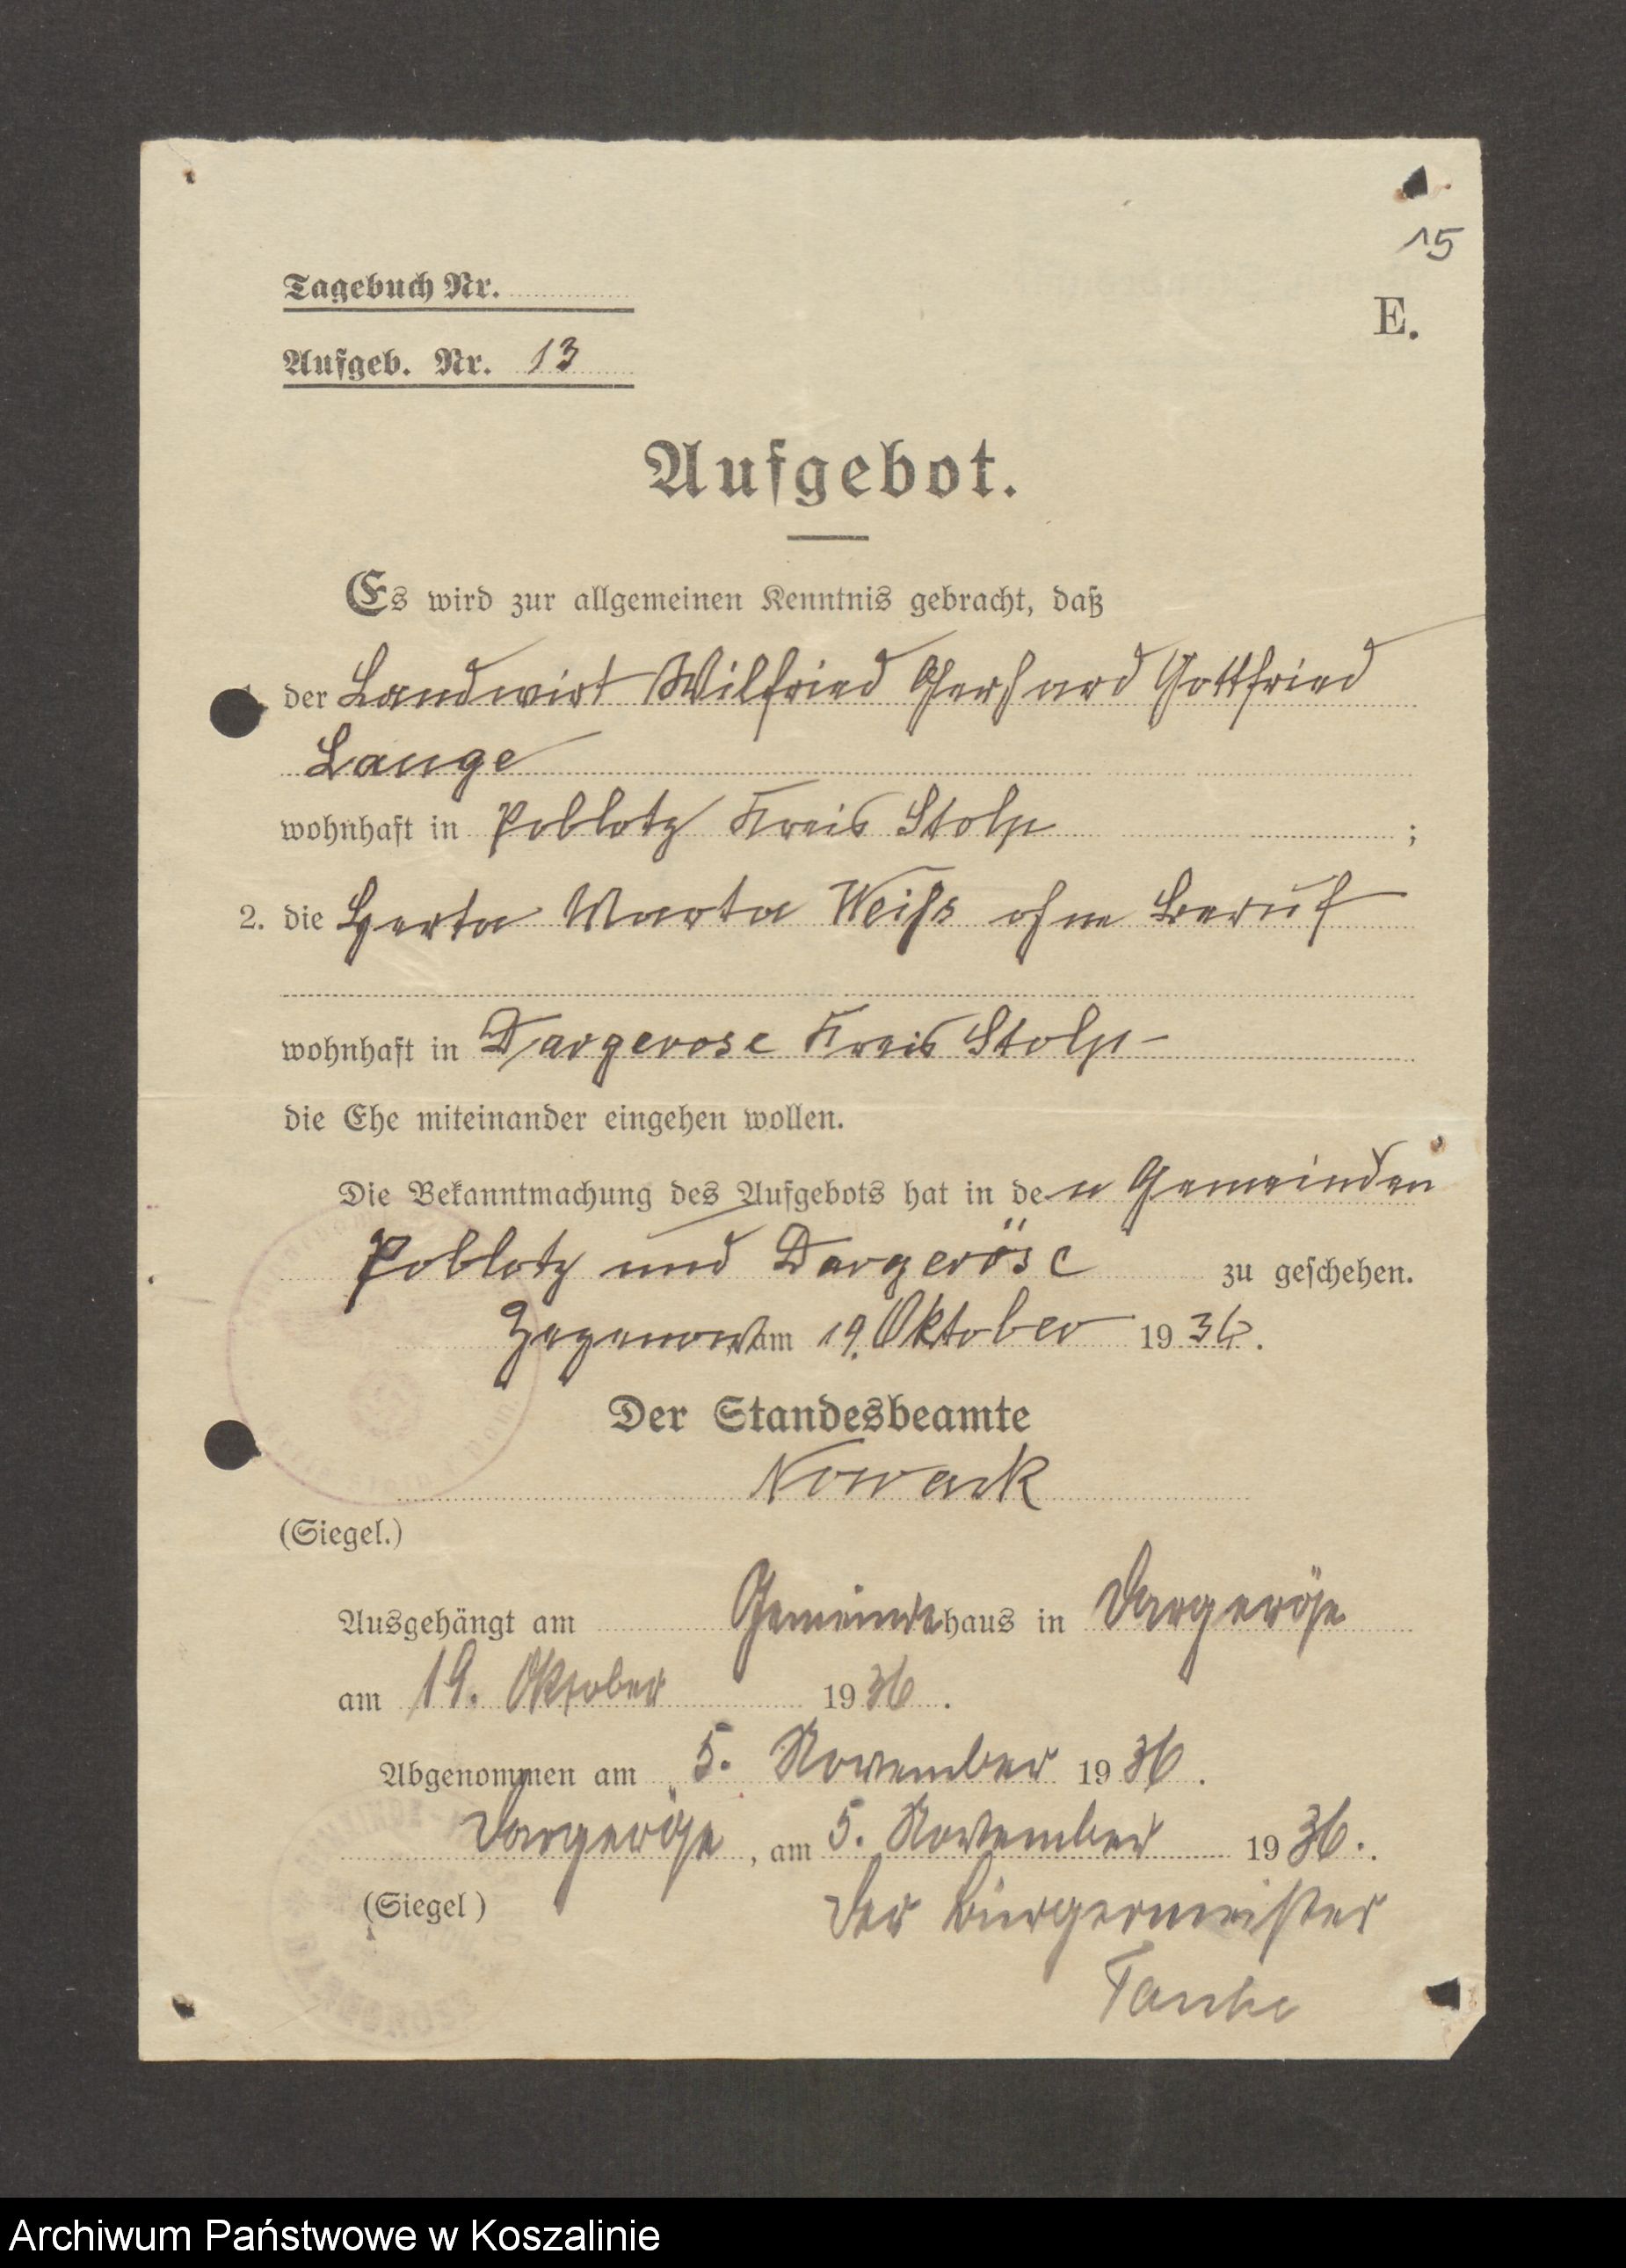 15
Tagebuch Nr.
E.
Aufgeb. Nr. 13
Aufgebot.
Es wird zur allgemeinen Kenntnis gebracht, daß
der Landwirt Wilfried Gerhard Gottfried
Lange
wohnhaft in Poblotz Kreis Stolp ;
2. die Herta Marta Weiß ohne Beruf
wohnhaft in Dargerose Kreis Stolp
die Ehe miteinander eingehen wollen.
Die Bekanntmachung des Aufgebots hat in den Gemeinden
Poblotz und Dargeröse zu geschehen.
Zezenow am 19. Oktober 1936.
Der Standesbeamte
Nowack
(Siegel.)
Ausgehängt am Gemeindehaus in Dargeröse
am 19. Oktober 1936.
Abgenommen am 5. November 1936.
Dargeröse, am 5. November 1936.
(Siegel)
Der Bürgermeister
Archiwum Państwowe w Koszalinie